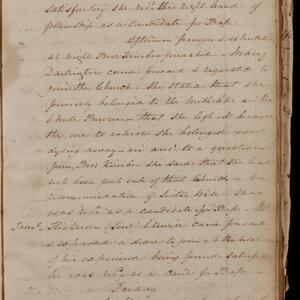 satisfactory she recd the right hand of
fellowship as a Candidate for Bap.
Afternoon prayers &
at night Bror Kimber preached - Mary
Darlington came forward & requested to
join the Church - She stated that she
formerly belonged to the
that she left it because
the one to which she belonged was
dying away - in ansr to a question
from Bror Kimber she said that she had
not been put out of that Church - on
recommendation of Sister she
was recd as a candidate for Bap. -
Saml Hickerson likewise came forward
& expressed a desire to join & the relation
of his experience being found satisfac
he was recd as a Cand. for Bap -
Friday